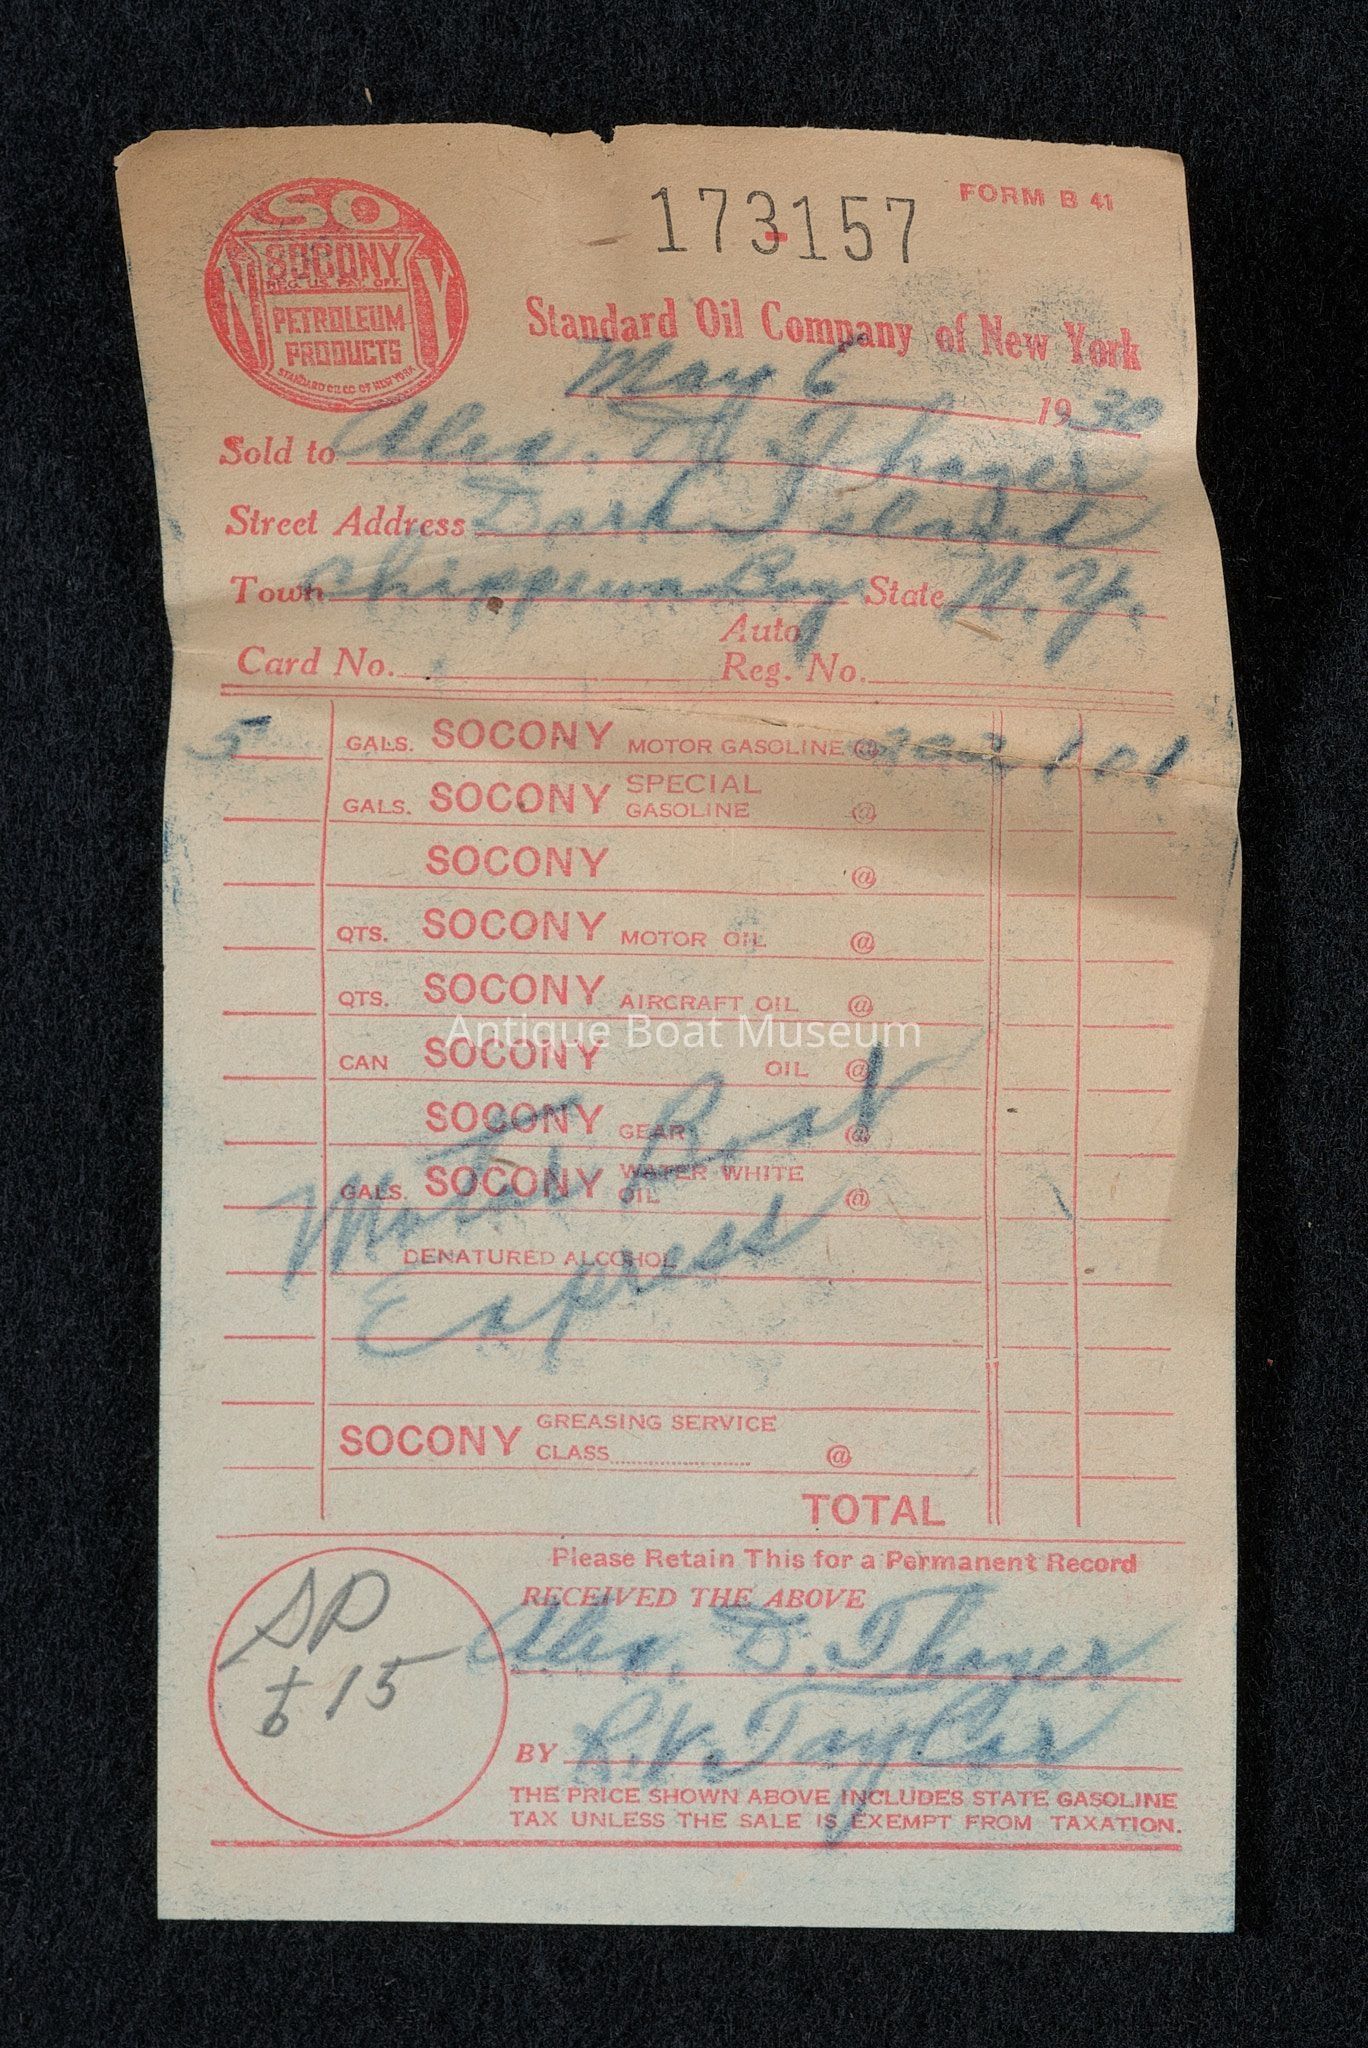 173-157
FORM B 41
SO
N Y
SOCONY
REG. U.S. PAT. OFF.
PETROLEUM
PRODUCTS
STANDARD OIL CO. OF NEW YORK
Standard Oil Company of New York
May 6 1930
Sold to Alex. Thayer
Street Address Dark Island
Town Chippewa Bay State N.Y.
Auto
Card No. Reg. No.
5 GALS. SOCONY MOTOR GASOLINE @ 1 01
GALS. SOCONY SPECIAL GASOLINE @
SOCONY @
QTS. SOCONY MOTOR OIL @
QTS. SOCONY AIRCRAFT OIL @
Antique Boat Museum
CAN SOCONY OIL @
SOCONY GEAR @
GALS. SOCONY WATER WHITE OIL @
Motor Boat
DENATURED ALCOHOL
Express
SOCONY GREASING SERVICE
CLASS @
TOTAL
Please Retain This for a Permanent Record
RECEIVED THE ABOVE
SD
t 15
Alex. D. Thayer
BY R.V. Taylor
THE PRICE SHOWN ABOVE INCLUDES STATE GASOLINE
TAX UNLESS THE SALE IS EXEMPT FROM TAXATION.